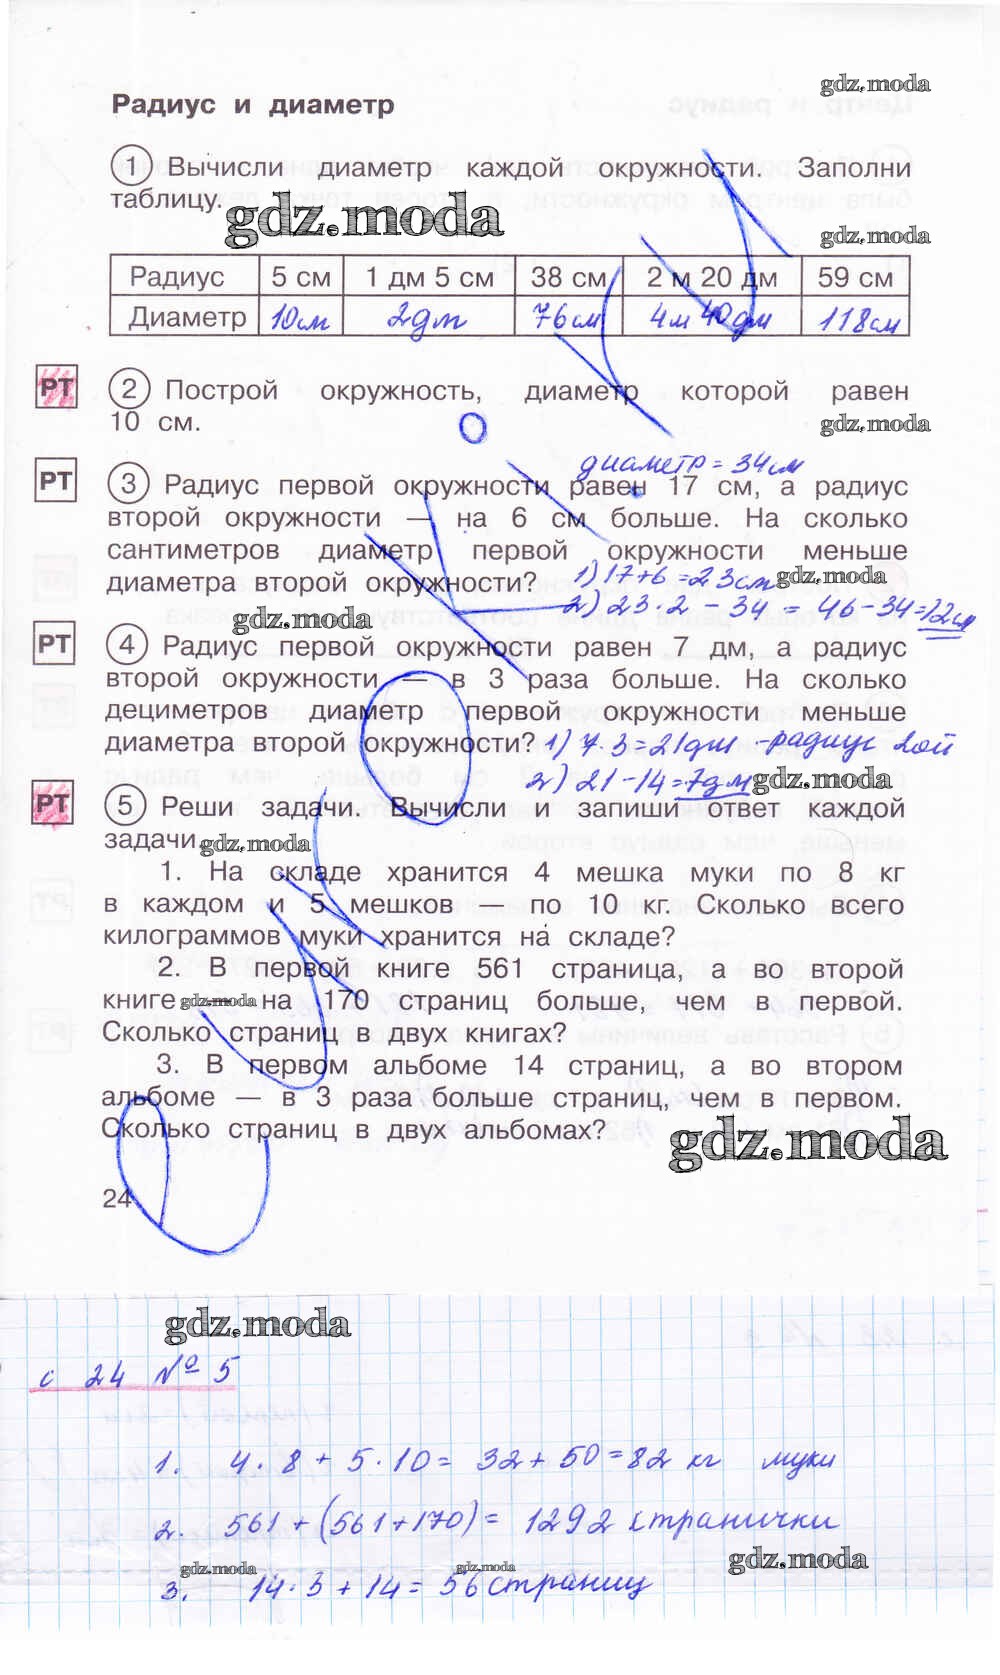 gdz.moda
Радиус и диаметр
1 Вычисли диаметр каждой окружности. Заполни
таблицу.
gdz.moda
gdz.moda
Радиус 5 см 1 дм 5 см 38 см 2 м 20 дм 59 см
Диаметр 10см 2дм 76см 4м 40дм 118см
РТ 2 Построй окружность, диаметр которой равен
10 см.
gdz.moda
диаметр = 34см
РТ 3 Радиус первой окружности равен 17 см, а радиус
второй окружности — на 6 см больше. На сколько
сантиметров диаметр первой окружности меньше
диаметра второй окружности? 1) 17+6 = 23см
gdz.moda
2) 23·2 - 34 = 46-34=12см
gdz.moda
РТ 4 Радиус первой окружности равен 7 дм, а радиус
второй окружности — в 3 раза больше. На сколько
дециметров диаметр первой окружности меньше
диаметра второй окружности? 1) 7·3=21дм -радиус 2ой
2) 21-14=7дм
gdz.moda
РТ 5 Реши задачи. Вычисли и запиши ответ каждой
задачи.
gdz.moda
1. На складе хранится 4 мешка муки по 8 кг
в каждом и 5 мешков — по 10 кг. Сколько всего
килограммов муки хранится на складе?
2. В первой книге 561 страница, а во второй
книге gdz.moda на 170 страниц больше, чем в первой.
Сколько страниц в двух книгах?
3. В первом альбоме 14 страниц, а во втором
альбоме — в 3 раза больше страниц, чем в первом.
Сколько страниц в двух альбомах?
gdz.moda
24
gdz.moda
с 24 № 5
1. 4·8+5·10= 32+50=82 кг муки
2. 561+(561+170)= 1292 странички
gdz.moda
gdz.moda
gdz.moda
3. 14·3+14= 56 страниц